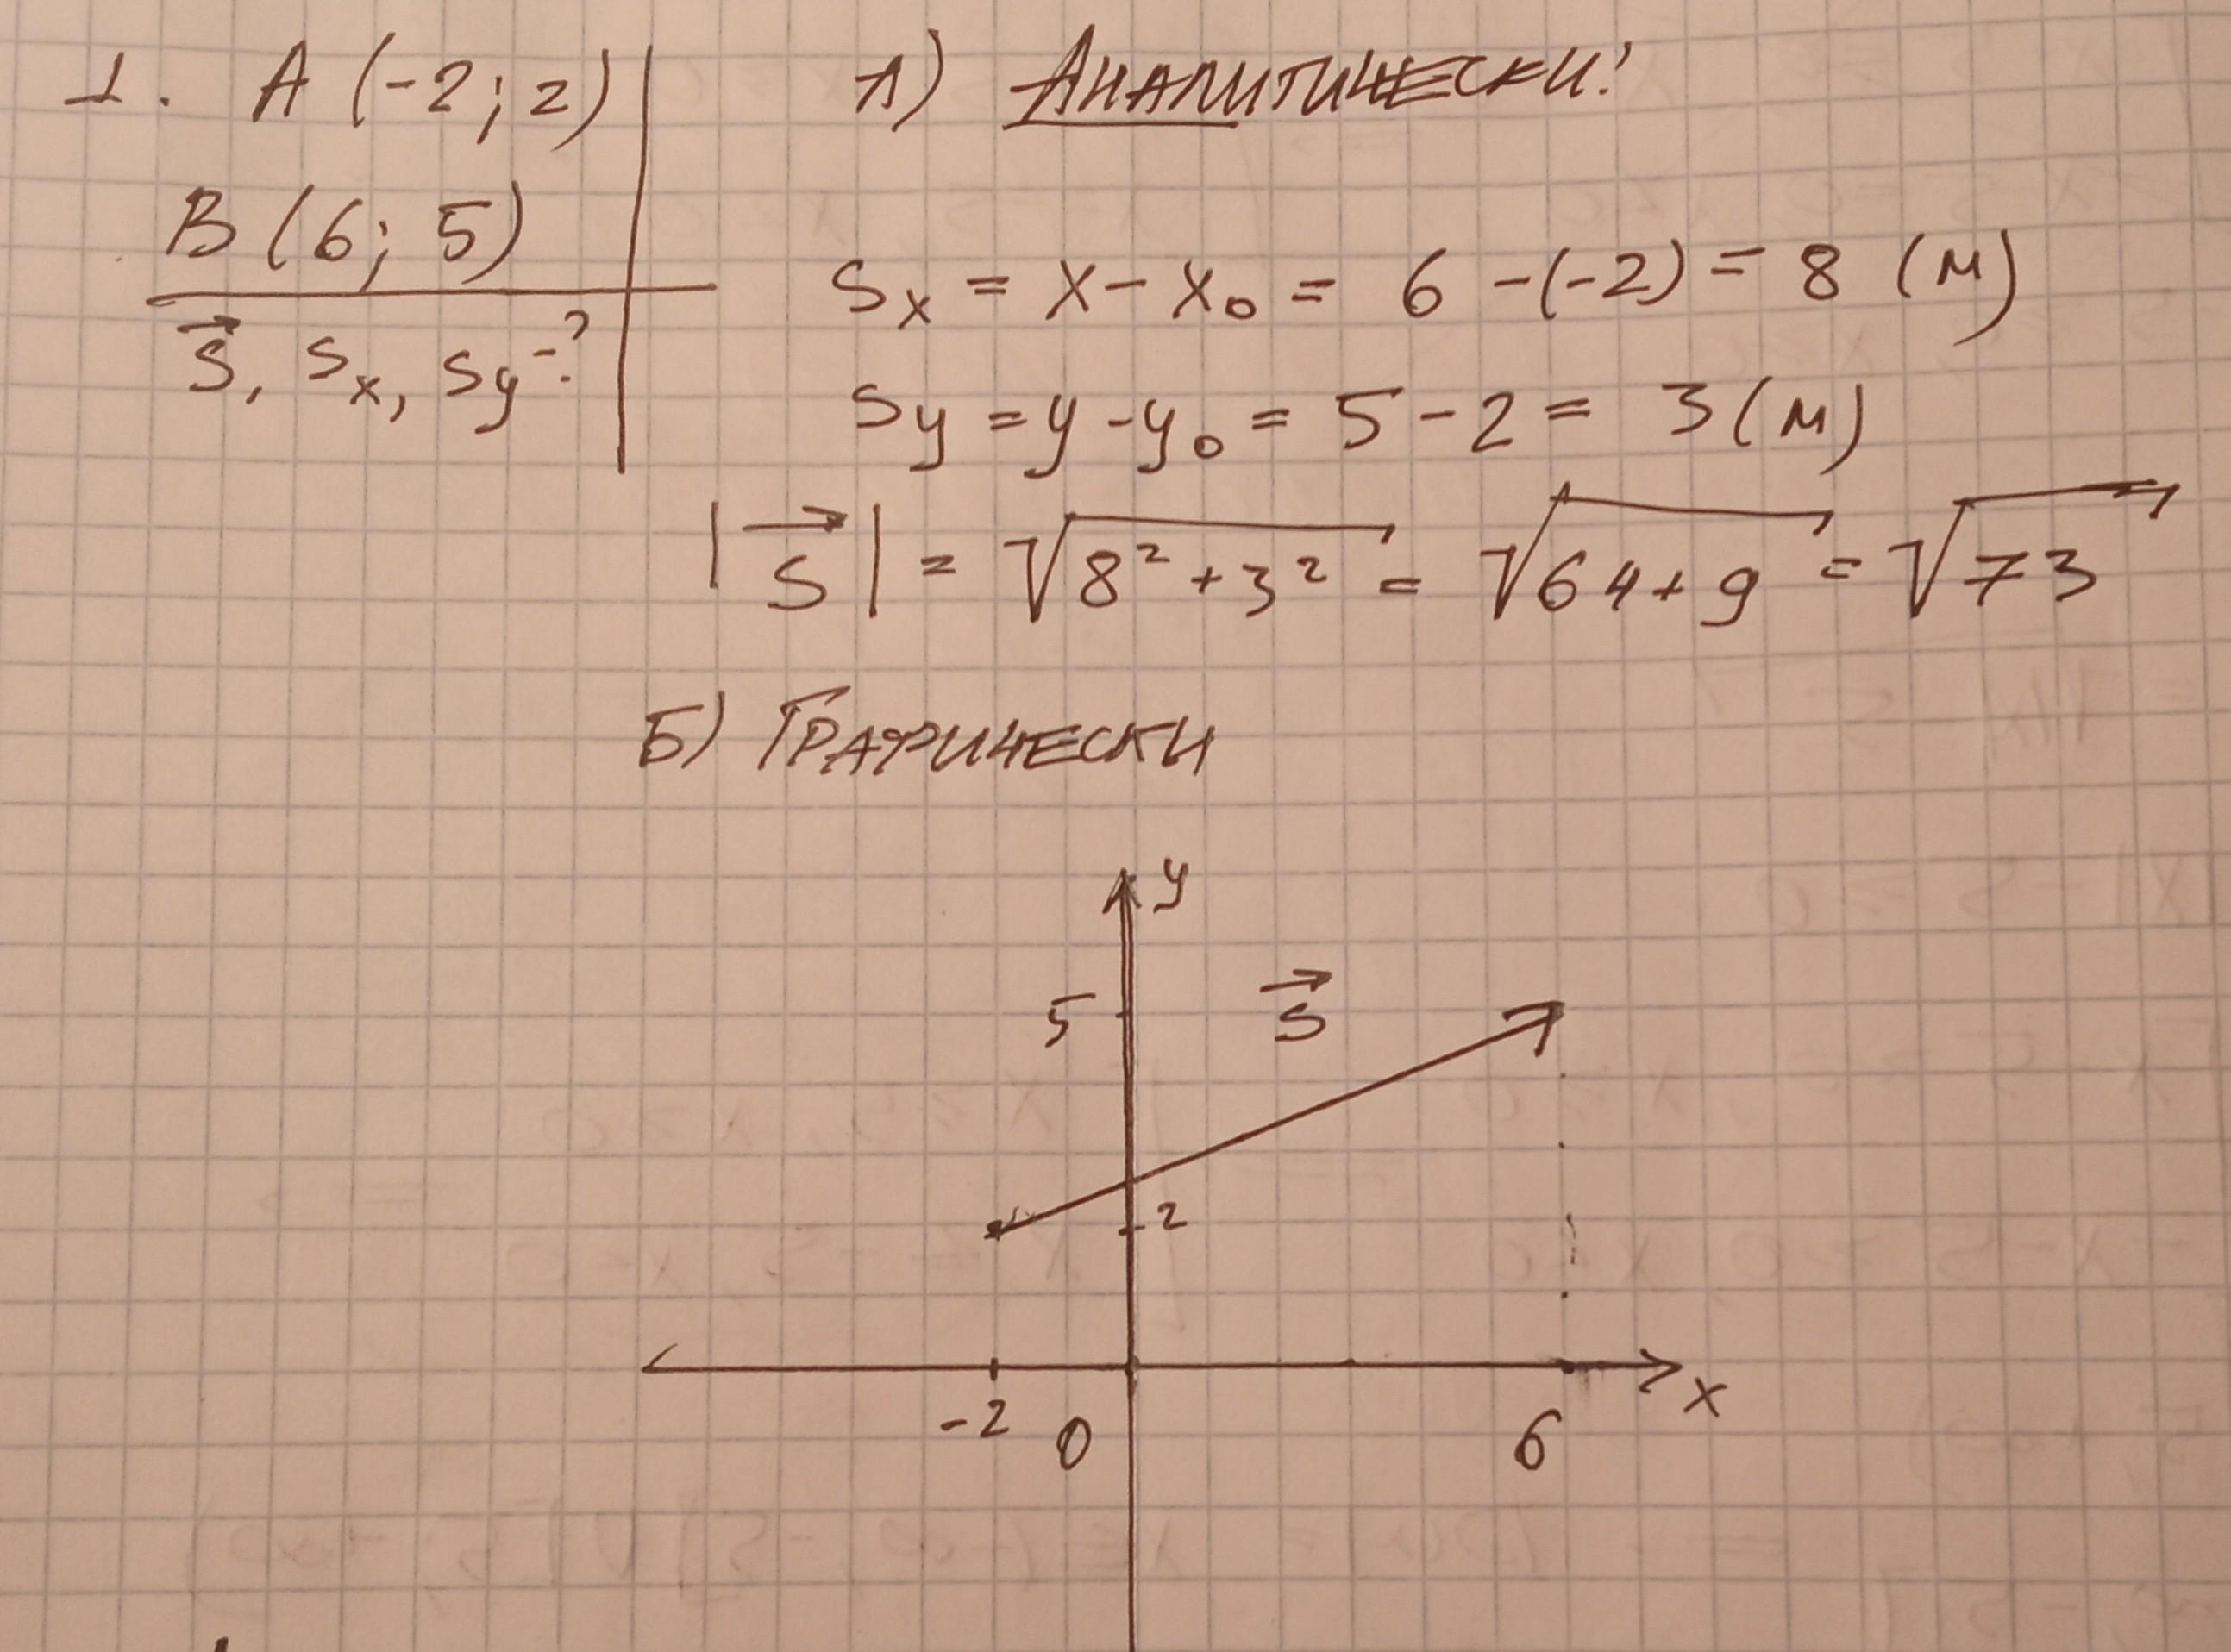 1. A (-2; 2)
B (6; 5)
s⃗, sₓ, sy - ?
А) Аналитически:
sₓ = x - x₀ = 6 - (-2) = 8 (м)
sy = y - y₀ = 5 - 2 = 3 (м)
|s⃗| = √(8² + 3²) = √(64 + 9) = √73
Б) Графически
y
5
s⃗
2
-2
0
6
x